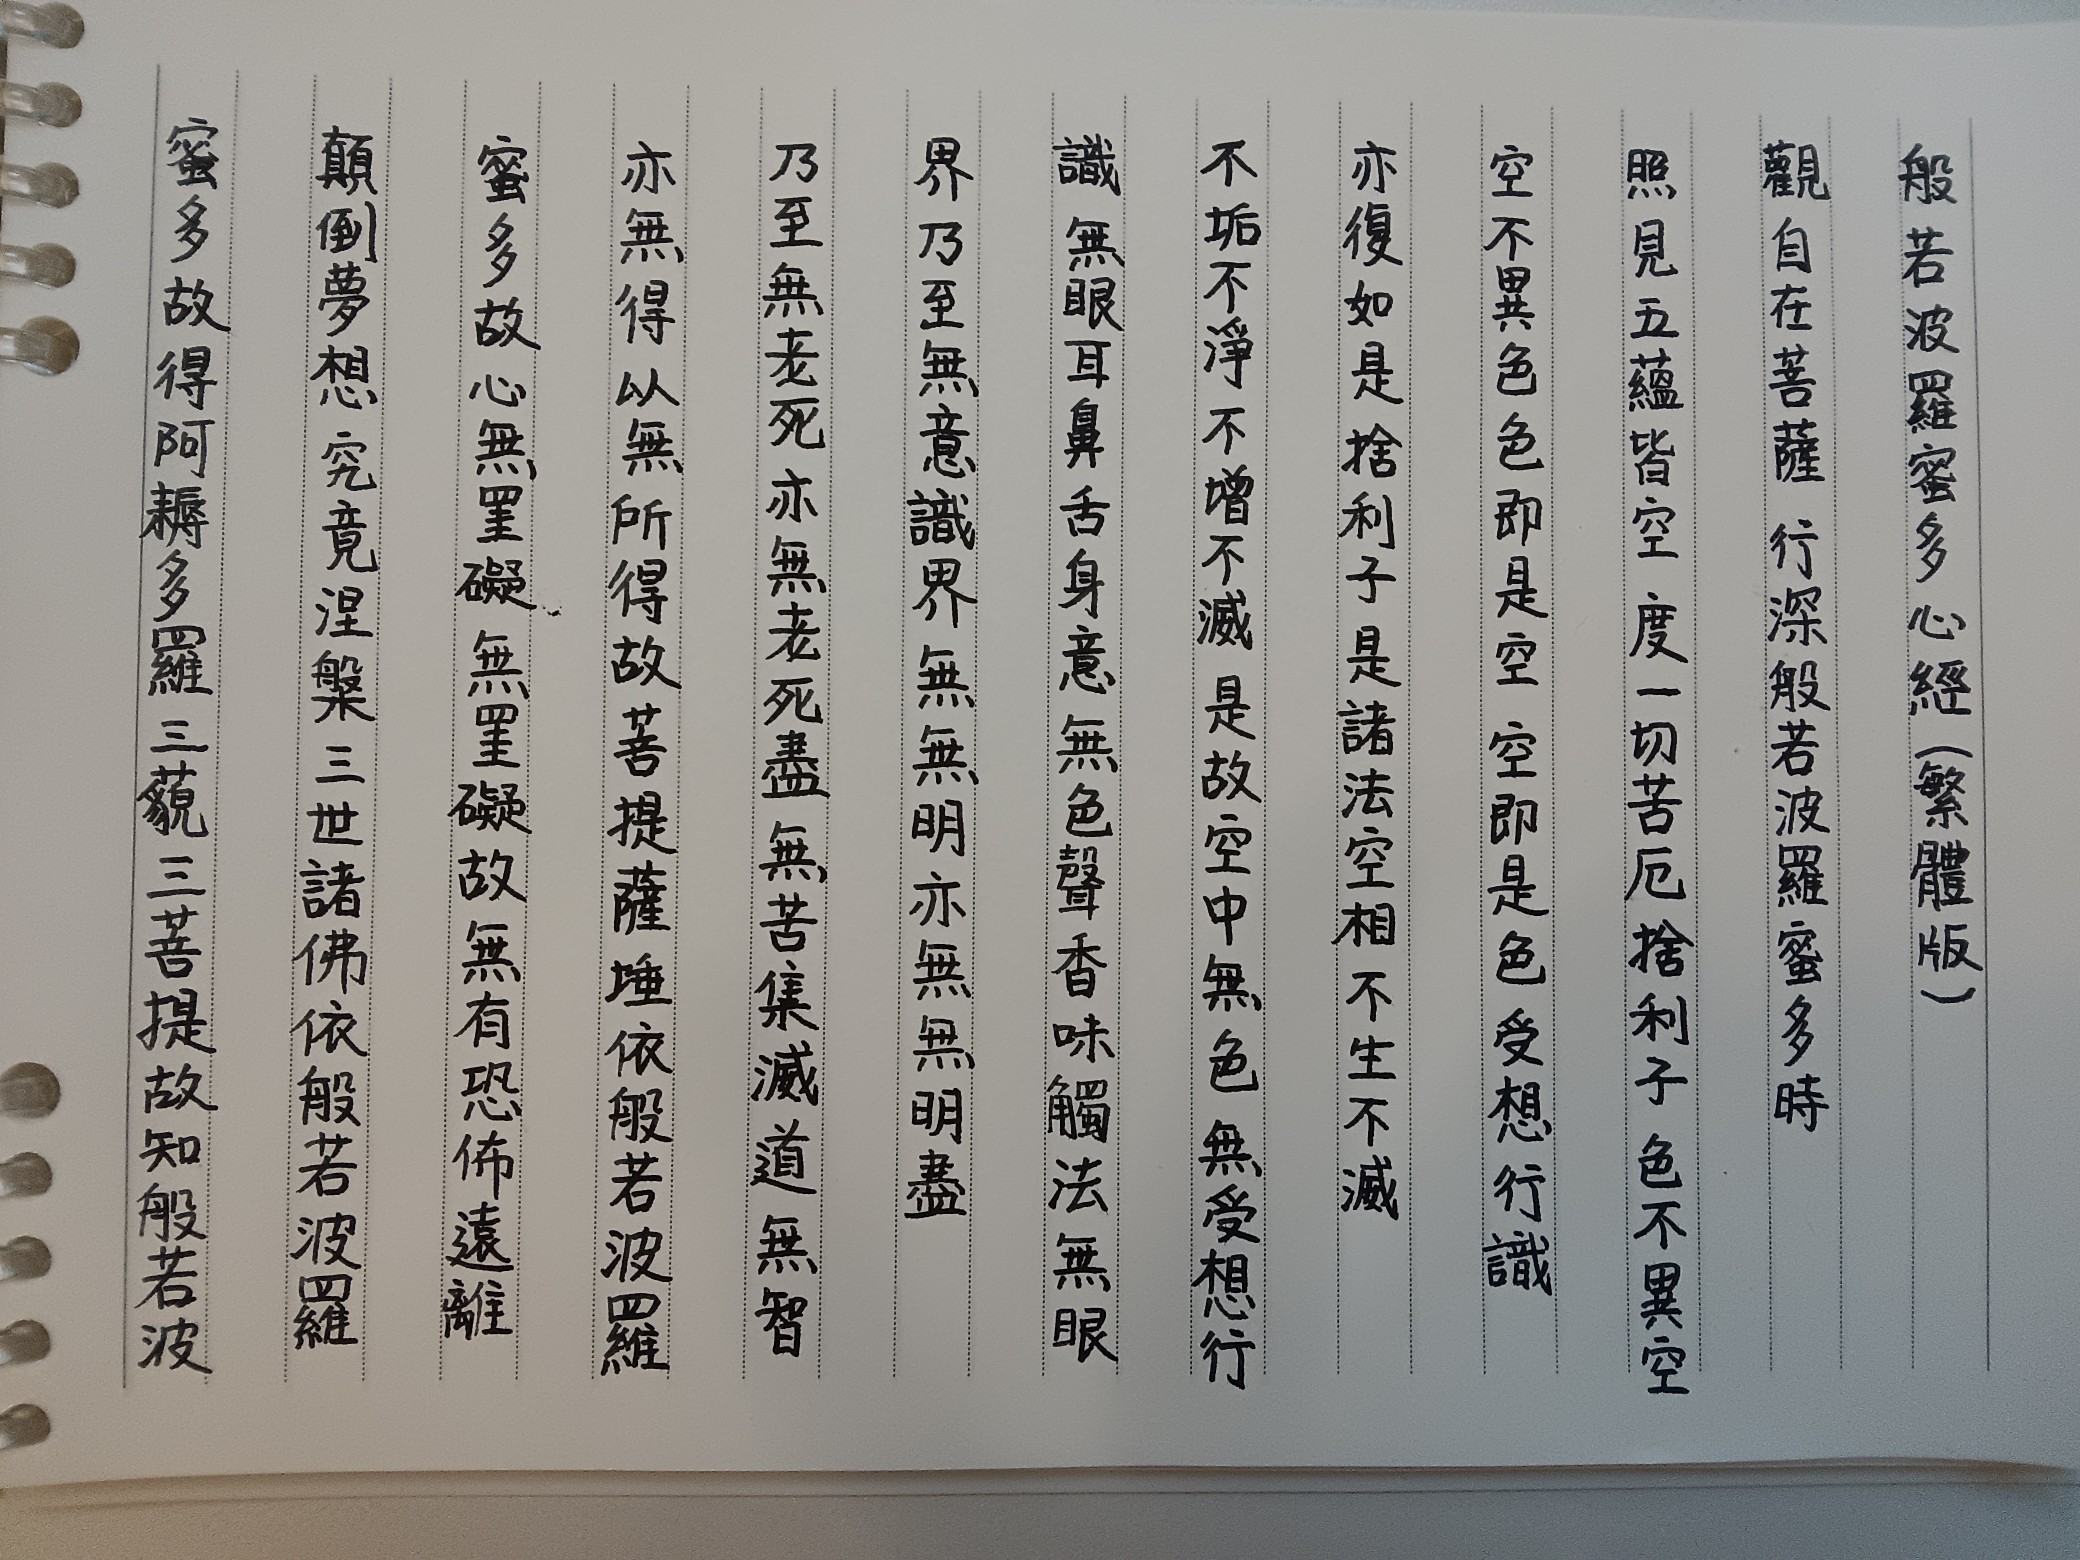 般若波羅蜜多心經(繁體版)
觀自在菩薩 行深般若波羅蜜多時
照見五蘊皆空 度一切苦厄 捨利子 色不異空
空不異色 色即是空 空即是色 受想行識
亦復如是 捨利子 是諸法空相 不生不滅
不垢不淨 不增不滅 是故空中無色 無受想行
識 無眼耳鼻舌身意 無色聲香味觸法 無眼
界 乃至無意識界 無無明 亦無無明盡
乃至無老死 亦無老死盡 無苦集滅道 無智
亦無得 以無所得故 菩提薩埵 依般若波羅
蜜多故 心無罣礙 無罣礙故 無有恐佈 遠離
顛倒夢想 究竟涅槃 三世諸佛 依般若波羅
蜜多故 得阿耨多羅三藐三菩提 故知般若波